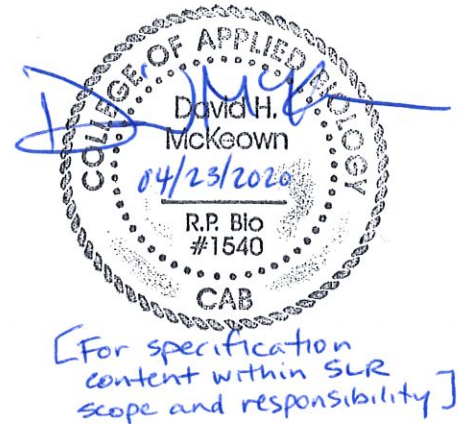 COLLEGE OF APPLIED BIOLOGY
David H.
McKeown
04/23/2020
R.P. Bio
#1540
CAB
[For specification
content within SLR
scope and responsibility]